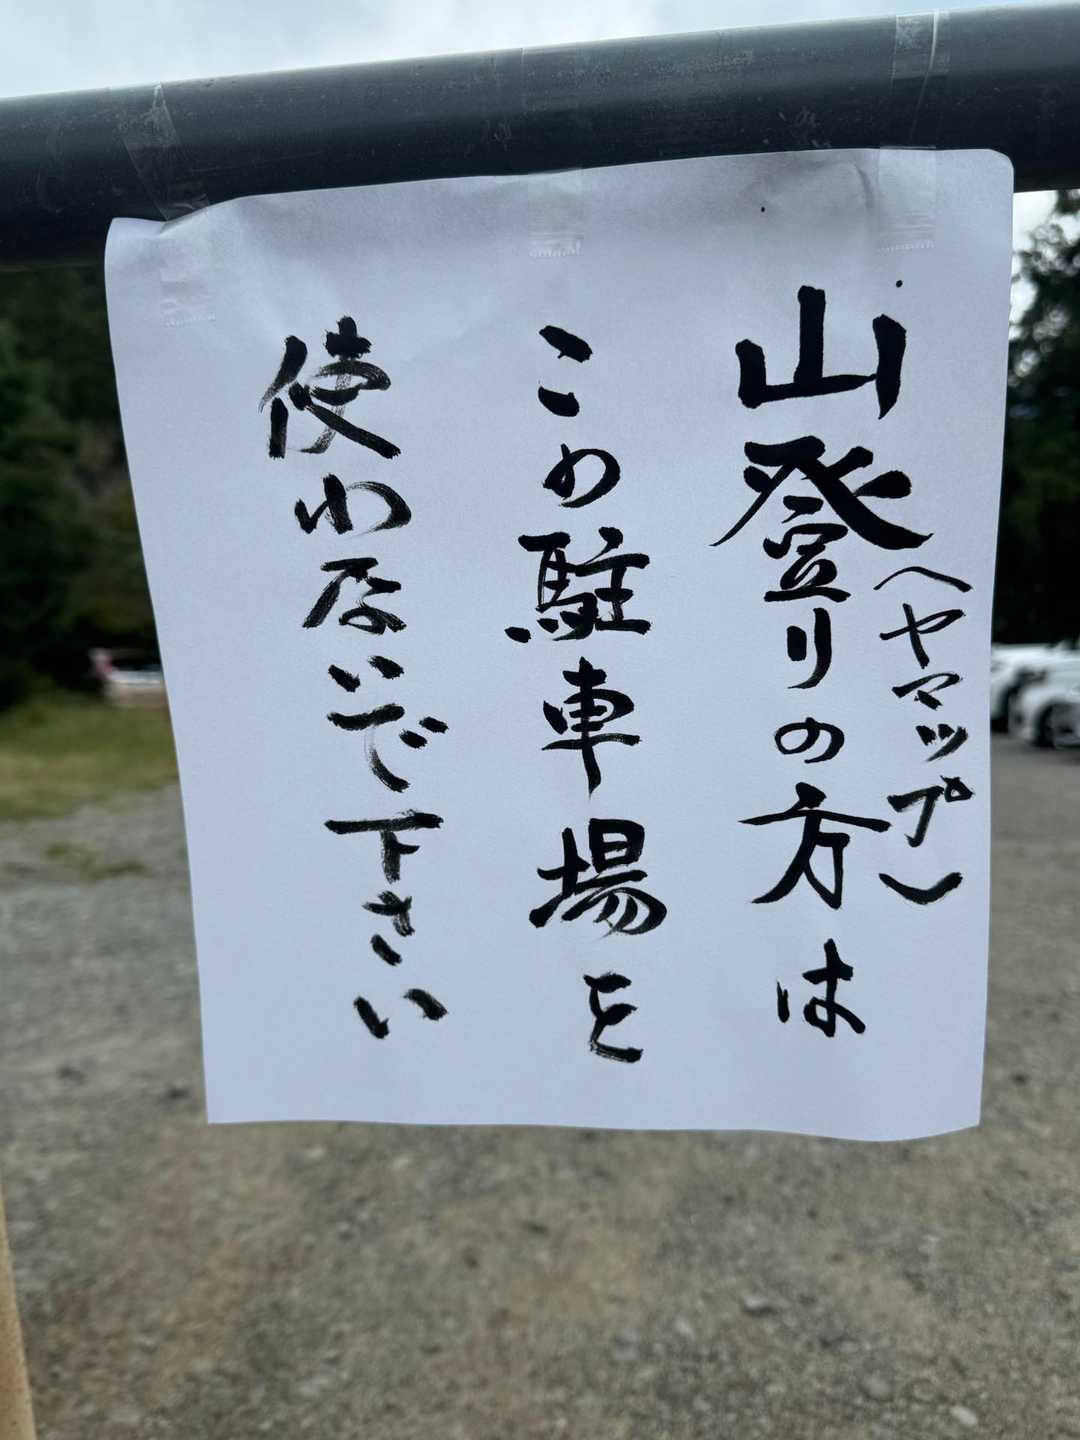 山登りの方は
(ヤマップ)
この駐車場を
使わないで下さい